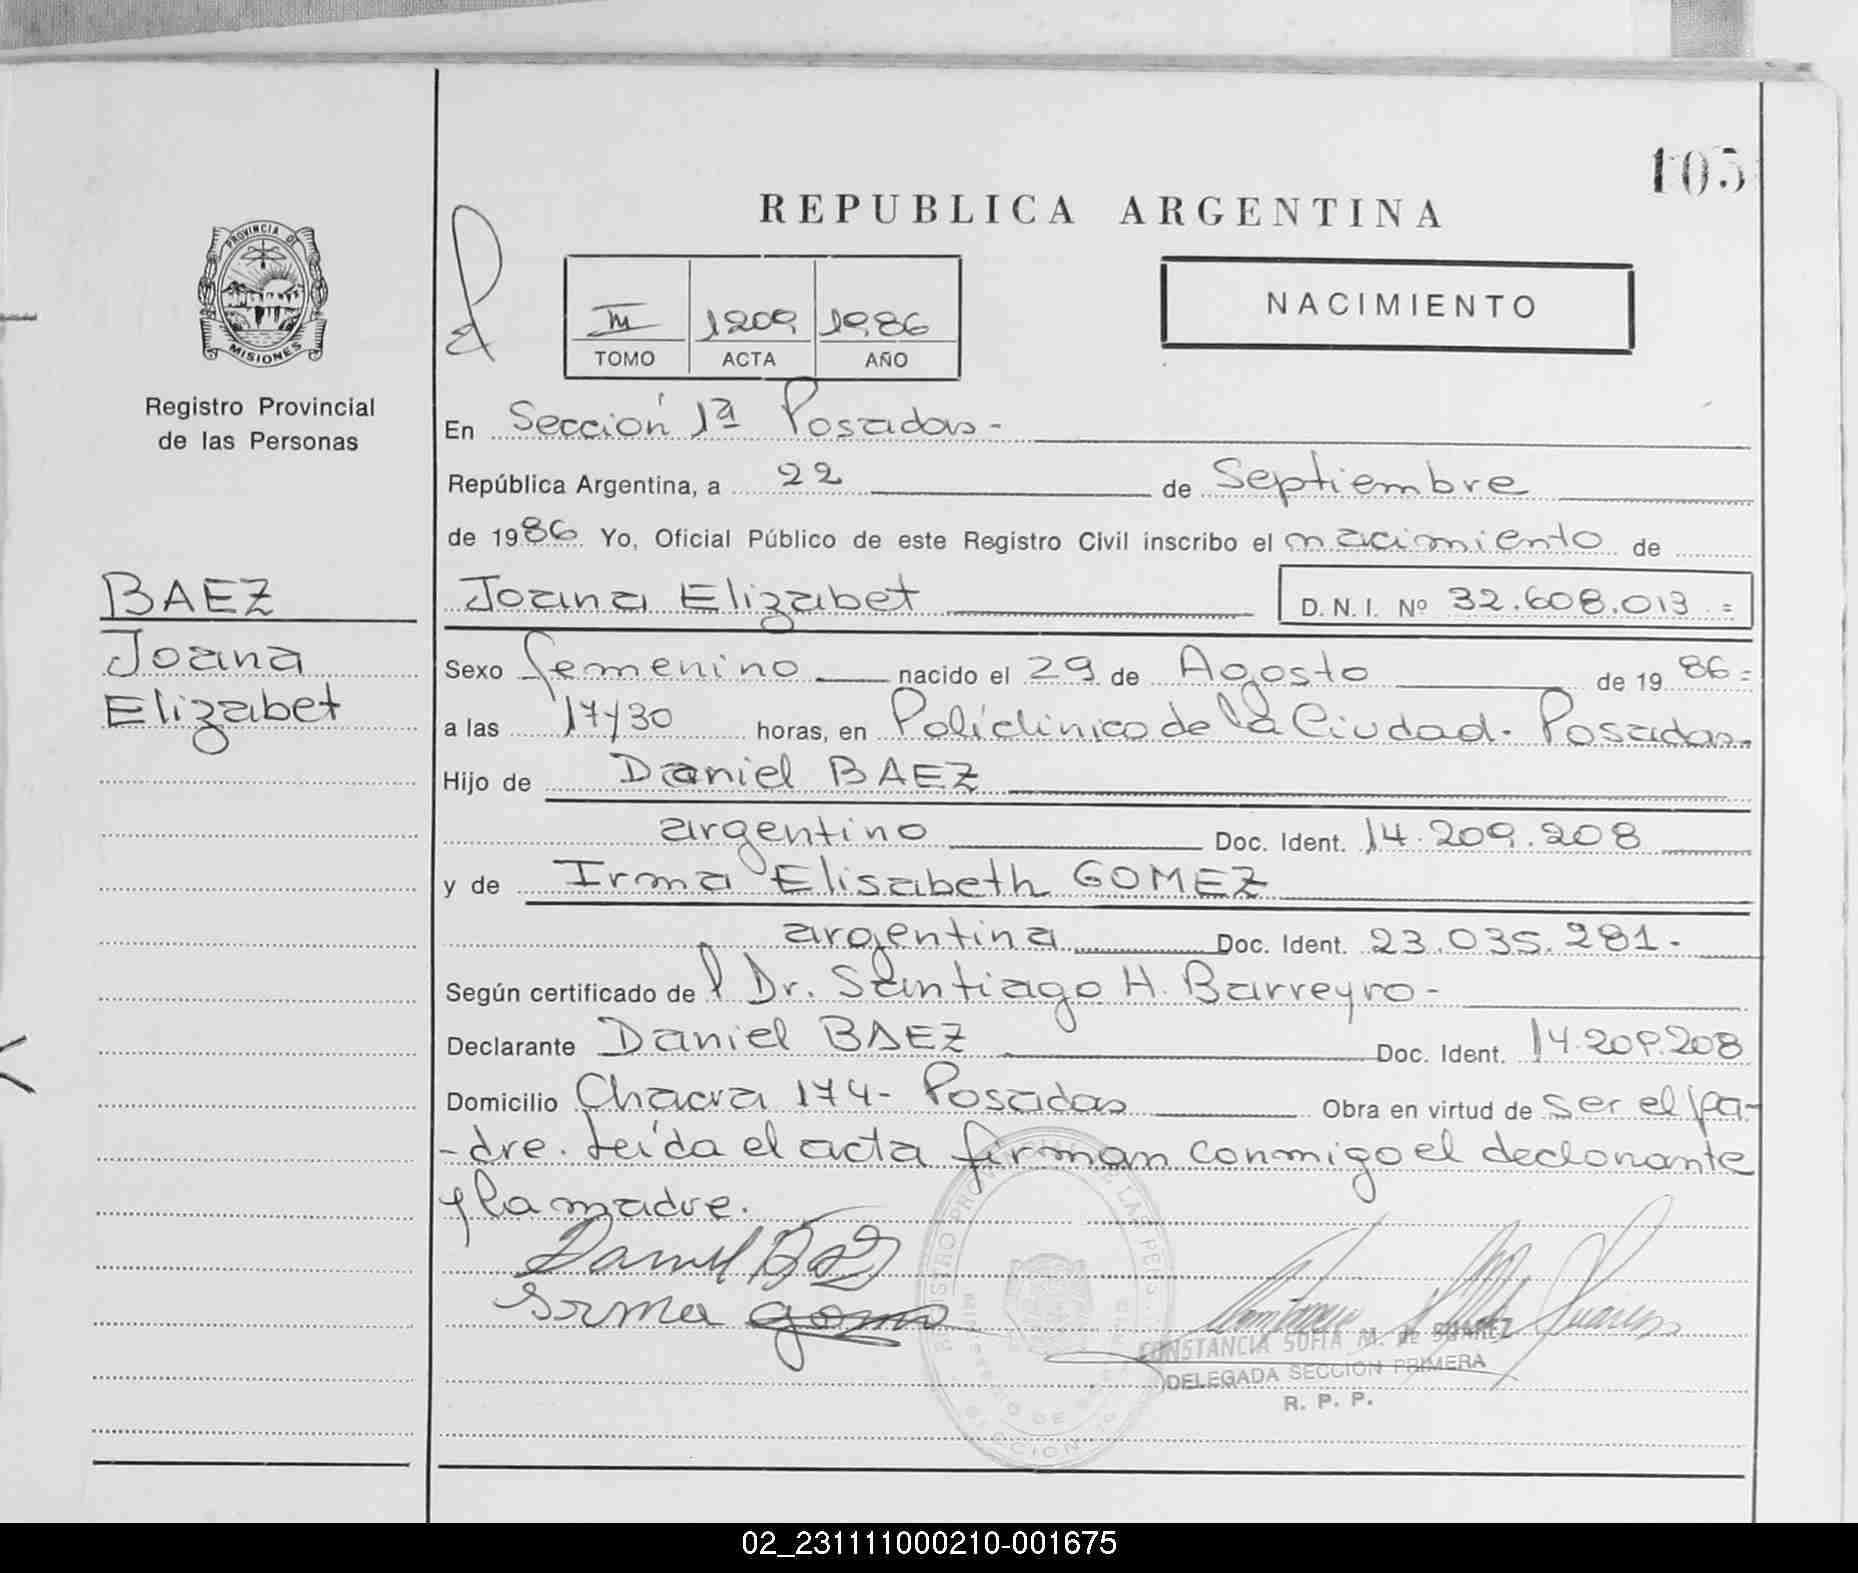 105
REPUBLICA ARGENTINA
PROVINCIA DE
MISIONES
Registro Provincial
de las Personas
III 1209 1986
TOMO ACTA AÑO
NACIMIENTO
En Sección 1ª Posadas -
República Argentina, a 22 de Septiembre
de 1986 Yo, Oficial Público de este Registro Civil inscribo el nacimiento de
BAEZ
Joana Elizabet D. N. I. Nº 32.608.013 =
Joana
Elizabet
Sexo femenino nacido el 29 de Agosto de 1986 =
a las 17y30 horas, en Policlinico de la Ciudad. Posadas.
Hijo de Daniel BAEZ
argentino Doc. Ident. 14.209.208
y de Irma Elisabeth GOMEZ
argentina Doc. Ident. 23.035.281.
Según certificado del Dr. Santiago H. Barreyro -
Declarante Daniel BAEZ Doc. Ident. 14.209.208
Domicilio Chacra 174 - Posadas Obra en virtud de ser el pa-
-dre. Leída el acta firman conmigo el declarante
y la madre.
Daniel Baez
Irma Gomez
CONSTANCIA SOFIA M. de SUAREZ
DELEGADA SECCION PRIMERA
R. P. P.
02_231111000210-001675